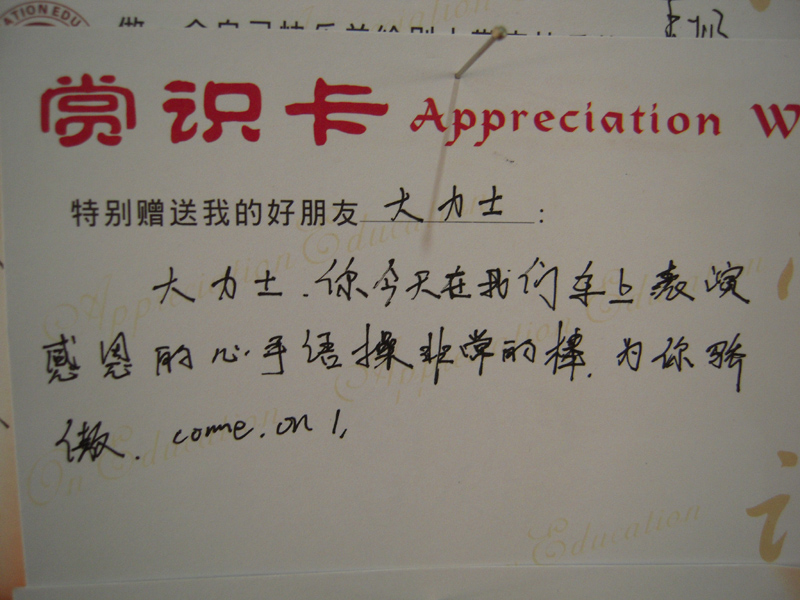 ATION EDU
赏识卡 Appreciation W
特别赠送我的好朋友 大力士 :
大力士.你今天在我们车上表演
感恩的心手语操非常的棒.为你骄
傲. come.on!.
Appreciation Education
Appreciation Education
On Education
Education